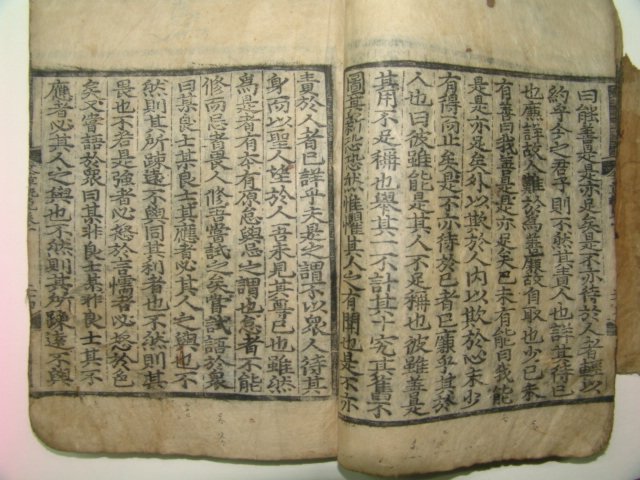 曰能善是是亦足矣是不亦待於人者輕以
約乎今之君子則不然其責人也詳其待己
也廉詳故人難於爲善廉故自取也少己未
有善曰我善是是亦足矣己未有能曰我能
是是亦足矣外以欺於人內以欺於心未少
有得而止矣是不亦待於己者已廉乎其於
人也曰彼雖能是其人不足稱也彼雖善是
其用不足稱也擧其一不計其十究其舊不
圖其新恐恐然惟懼其人之有聞也是不亦
責於人者已詳乎夫是之謂不以衆人待其
身而以聖人望於人吾未見其尊己也雖然
爲是者有本有原怠與忌之謂也怠者不能
修而忌者畏人修吾嘗試之矣嘗試語於衆
曰某良士某良士其應者必其人之與也不
然則其所疎遠不與同其利者也不然則其
畏也不若是强者必怒於言懦者必怒於色
矣又嘗語於衆曰某非良士某非良士其不
應者必其人之與也不然則其所疎遠不與